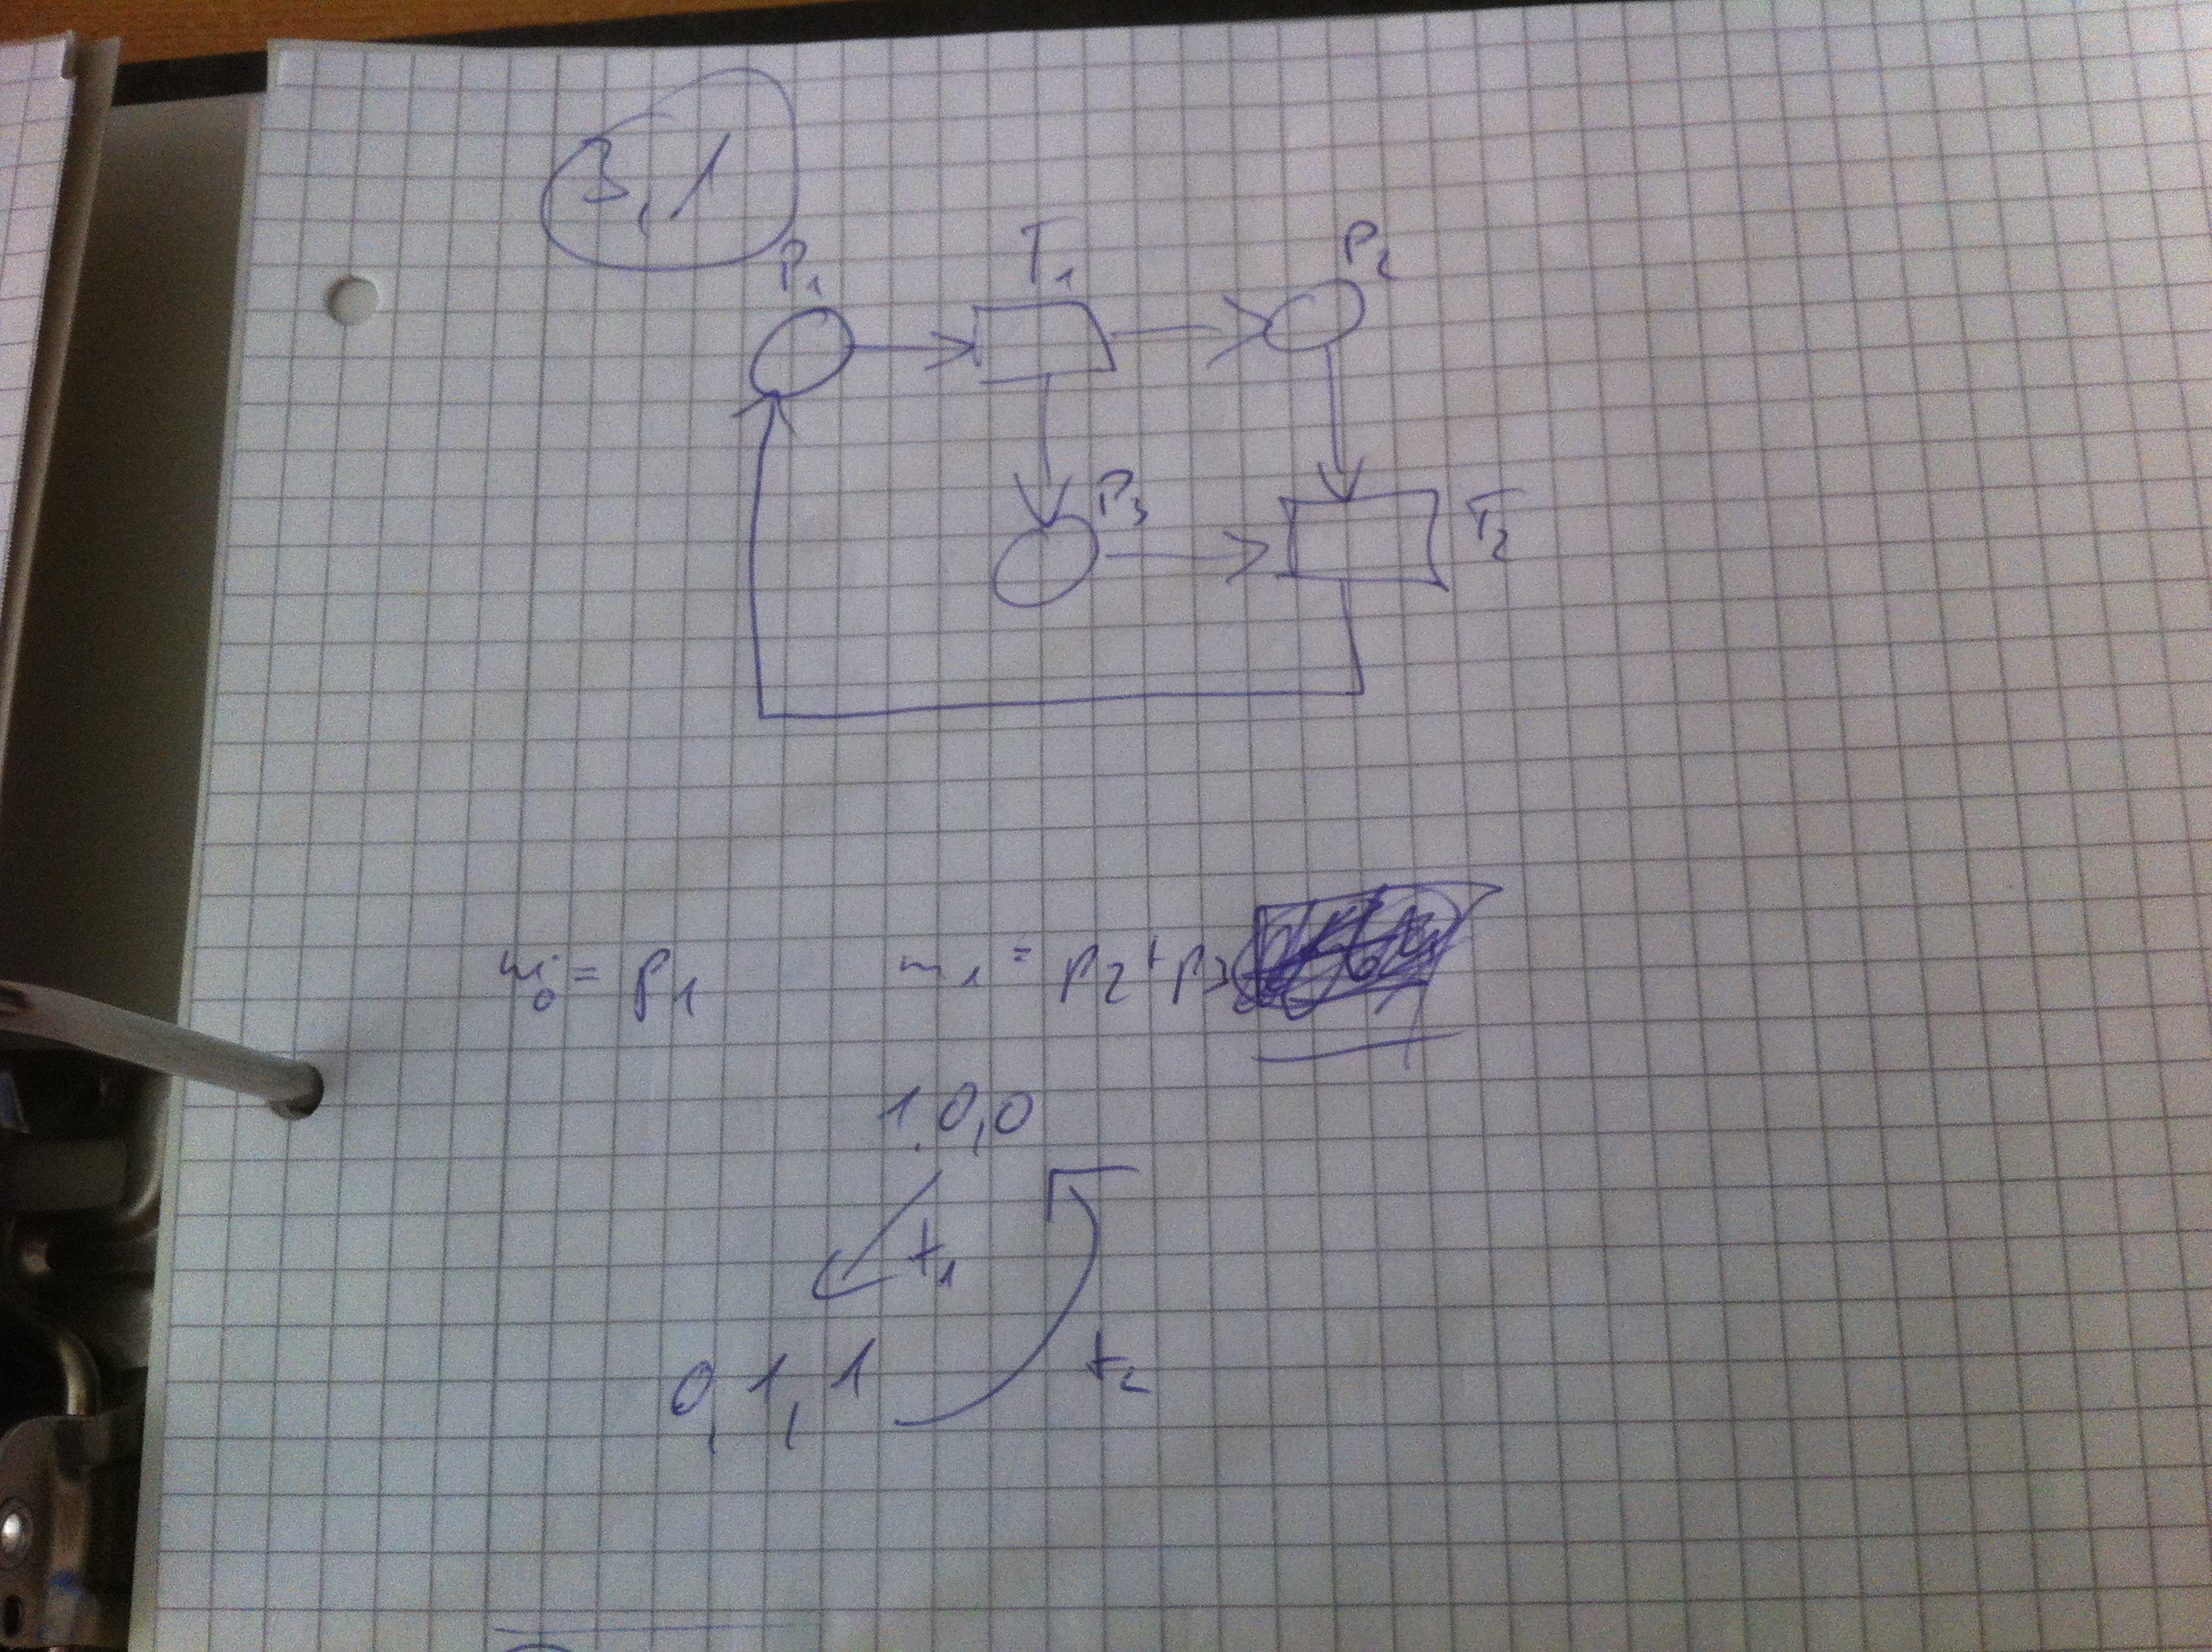 3,1
P1 T1 P2
P3 T2
m0 = p1 m1 = p2 + p3
1,0,0
t1 t2
0,1,1